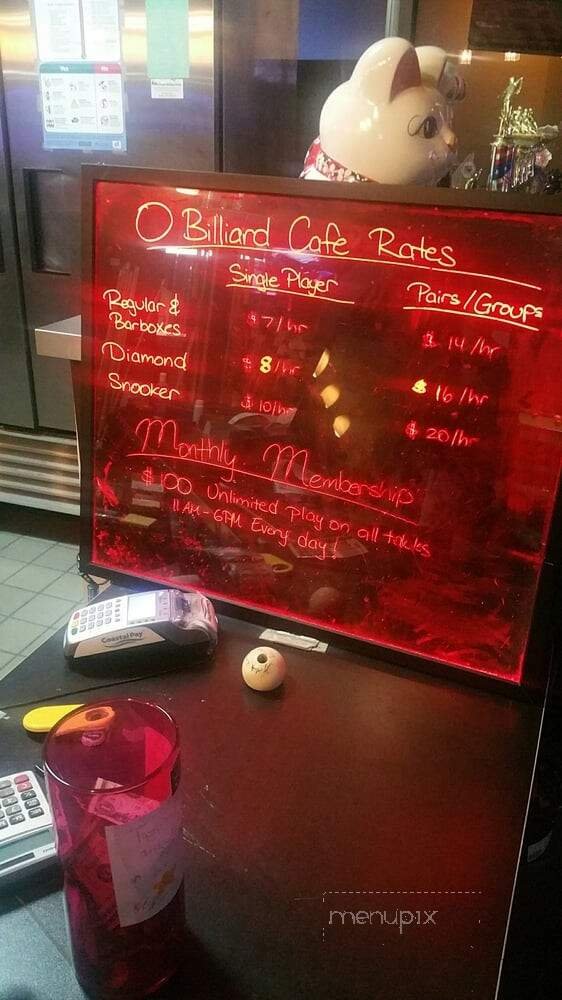 O Billiard Cafe Rates
Single Player
Pairs/Groups
Regular &
Barboxes
$7/hr
$14/hr
Diamond
$8/hr
$16/hr
Snooker
$10/hr
$20/hr
Monthly Membership
$100 Unlimited Play on all tables
11AM-6PM Every day!
Coastal Pay
menupix